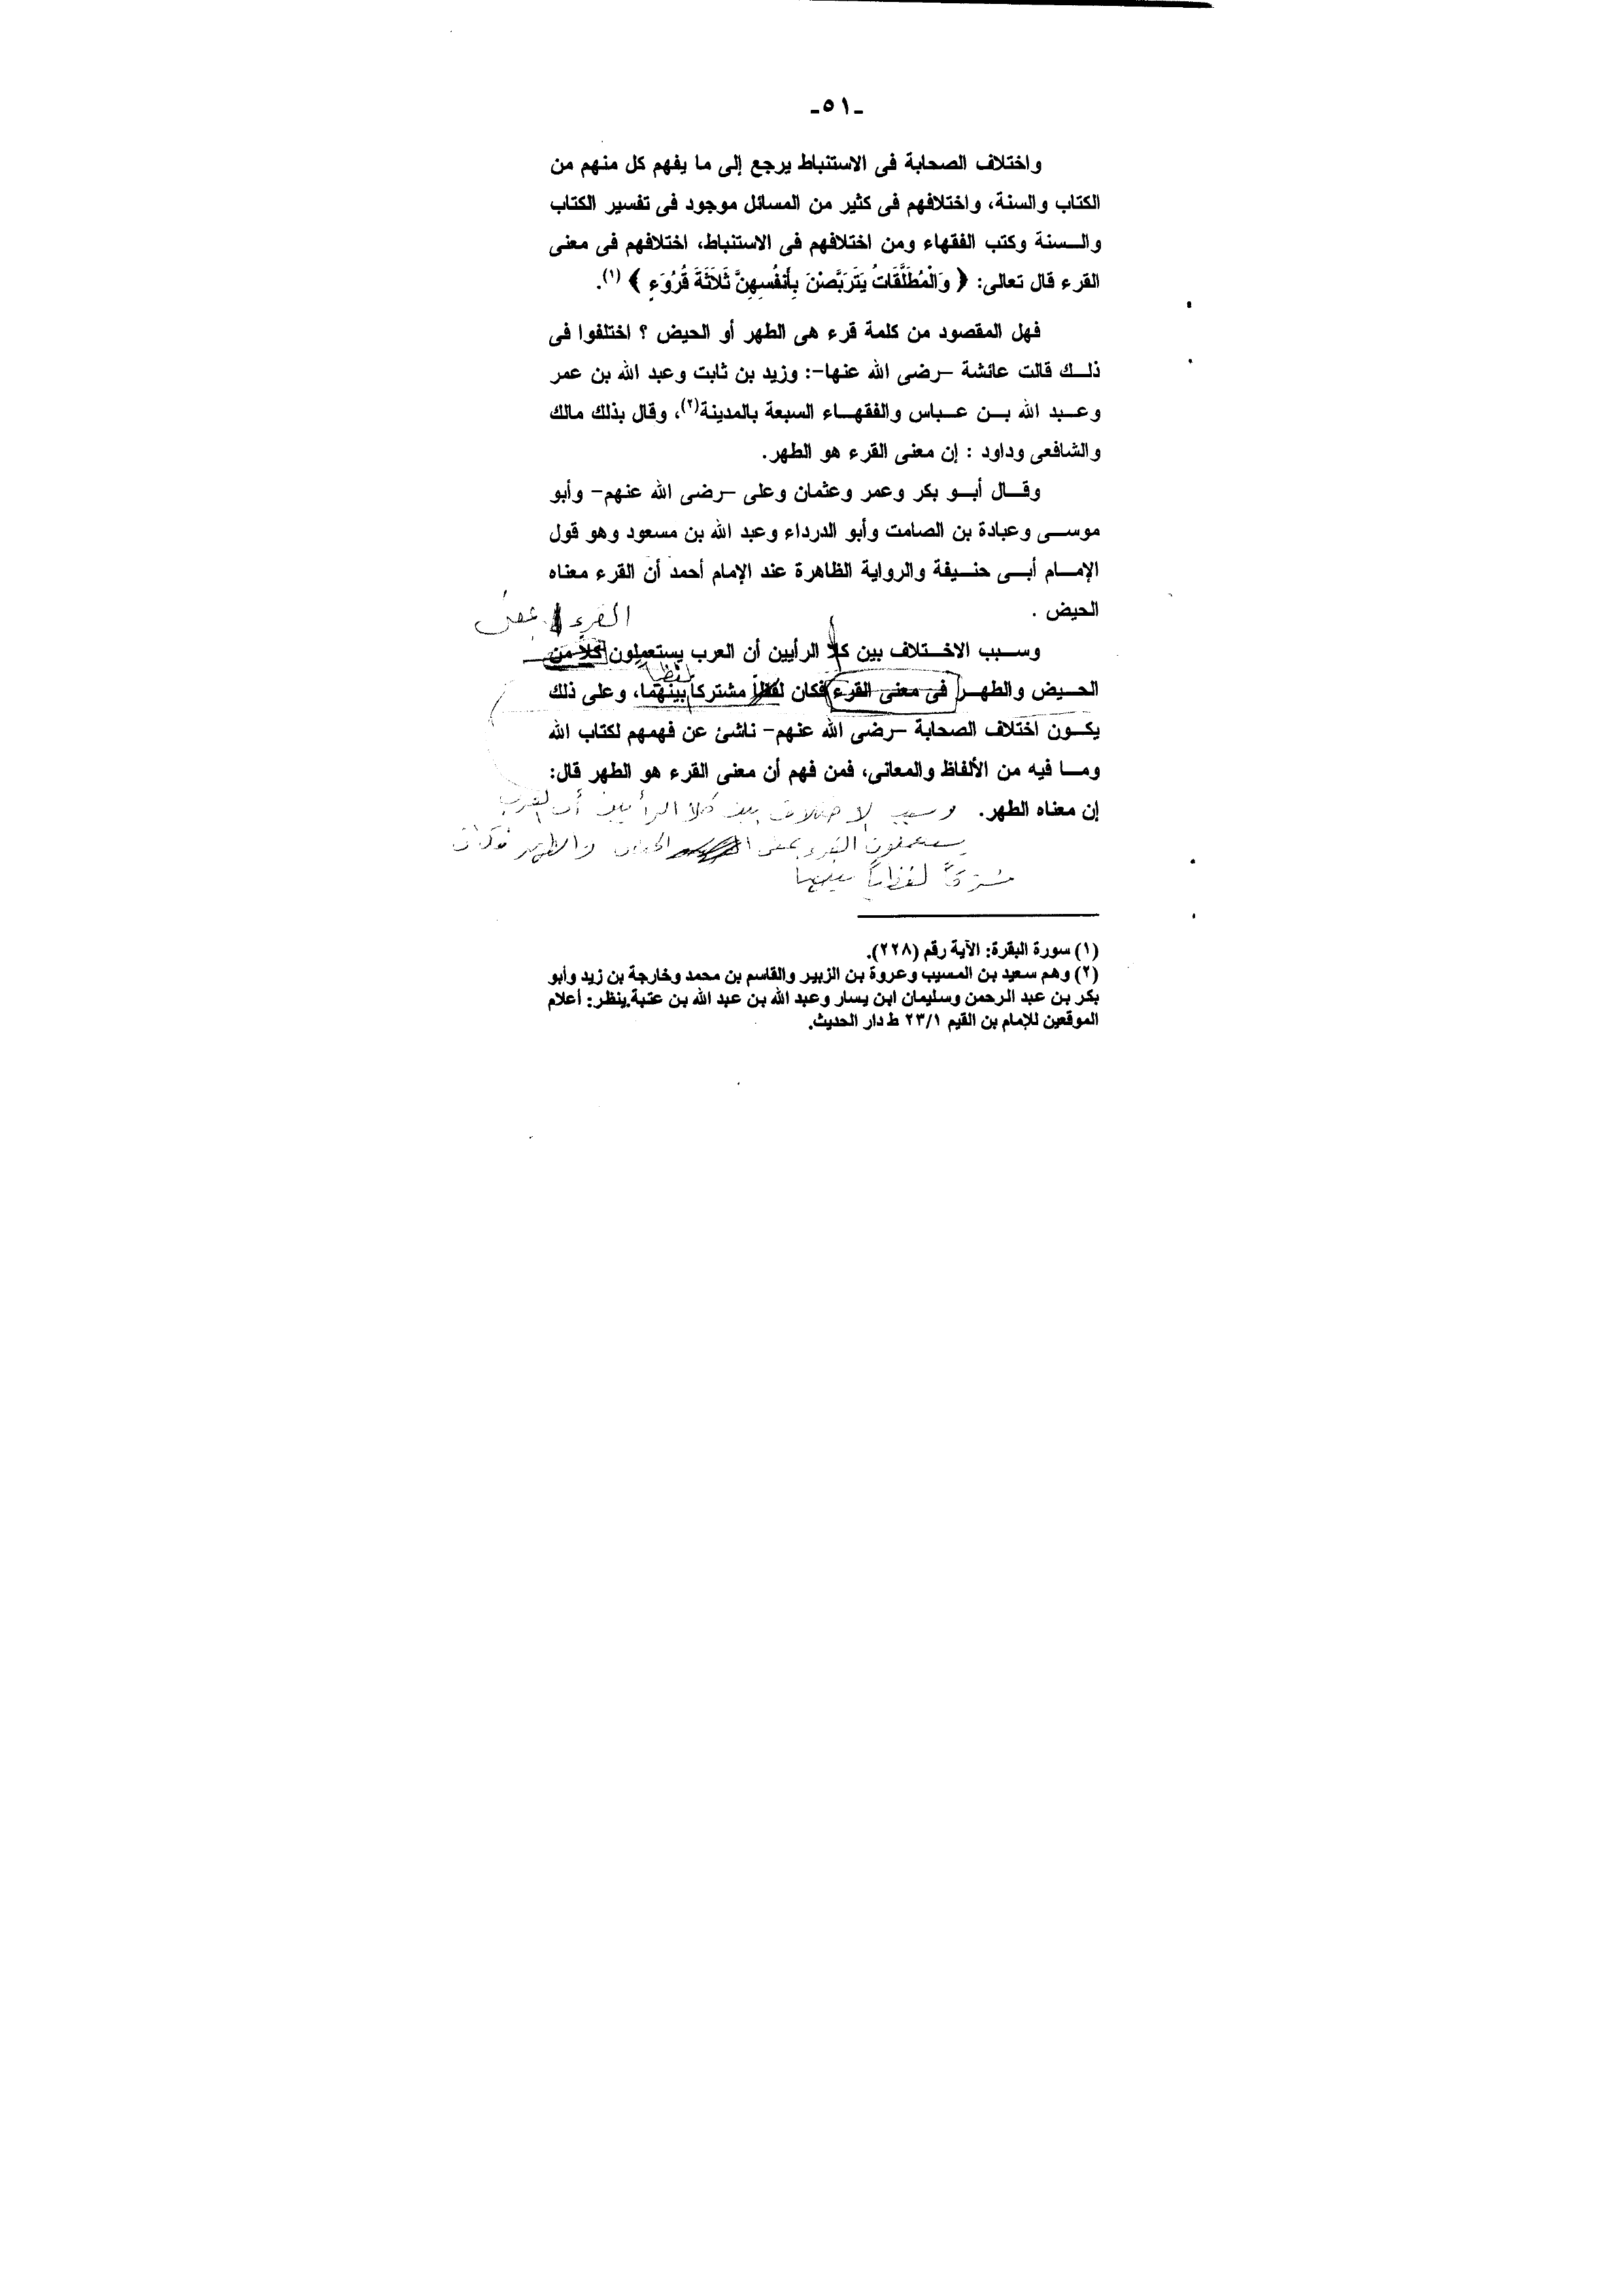 -٥١-
واختلاف الصحابة فى الاستنباط يرجع إلى ما يفهم كل منهم من
الكتاب والسنة، واختلافهم فى كثير من المسائل موجود فى تفسير الكتاب
والسنة وكتب الفقهاء ومن اختلافهم فى الاستنباط، اختلافهم فى معنى
القرء قال تعالى: ﴿ وَالْمُطَلَّقَاتُ يَتَرَبَّصْنَ بِأَنفُسِهِنَّ ثَلَاثَةَ قُرُوَءٍ ﴾ (١).
فهل المقصود من كلمة قرء هى الطهر أو الحيض ؟ اختلفوا فى
ذلك قالت عائشة –رضى الله عنها–: وزيد بن ثابت وعبد الله بن عمر
وعبد الله بن عباس والفقهاء السبعة بالمدينة(٢)، وقال بذلك مالك
والشافعى وداود : إن معنى القرء هو الطهر.
وقال أبو بكر وعمر وعثمان وعلى –رضى الله عنهم– وأبو
موسى وعبادة بن الصامت وأبو الدرداء وعبد الله بن مسعود وهو قول
الإمام أبى حنيفة والرواية الظاهرة عند الإمام أحمد أن القرء معناه
الحيض .
القرء بمعنى
وسبب الاختلاف بين كلا الرأيين أن العرب يستعملون كلاً من
لفظياً
الحيض والطهر فى معنى القرء فكان لفظاً مشتركاً بينهما، وعلى ذلك
يكون اختلاف الصحابة –رضى الله عنهم– ناشئ عن فهمهم لكتاب الله
وما فيه من الألفاظ والمعانى، فمن فهم أن معنى القرء هو الطهر قال:
إن معناه الطهر. وسبب الاختلاف بين كلا الرأيين أن العرب
يستعملون القرء بمعنى الحيض والطهر فكان
مشتركاً لفظياً بينهما
(١) سورة البقرة: الآية رقم (٢٢٨).
(٢) وهم سعيد بن المسيب وعروة بن الزبير والقاسم بن محمد وخارجة بن زيد وأبو
بكر بن عبد الرحمن وسليمان ابن يسار وعبد الله بن عبد الله بن عتبة.ينظر: أعلام
الموقعين للإمام بن القيم ٢٣/١ ط دار الحديث.